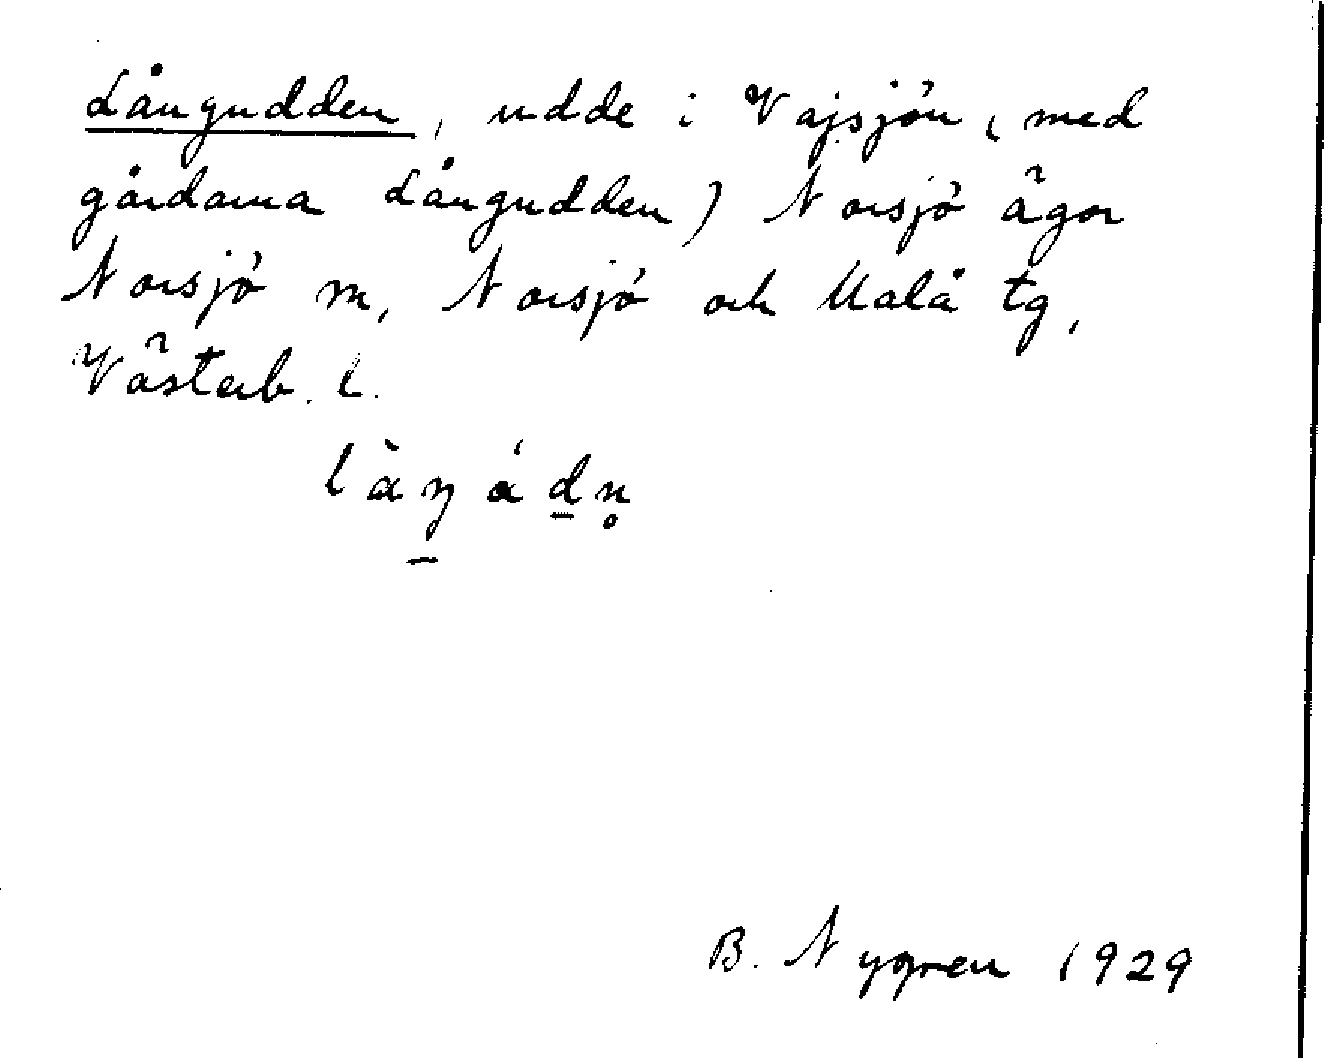 Långudden, udde i Vajsjön (med
gårdarna Långudden) Norsjö ägor
Norsjö m, Norsjö och Malå tg,
Västerb. l.
B. Nygren 1929